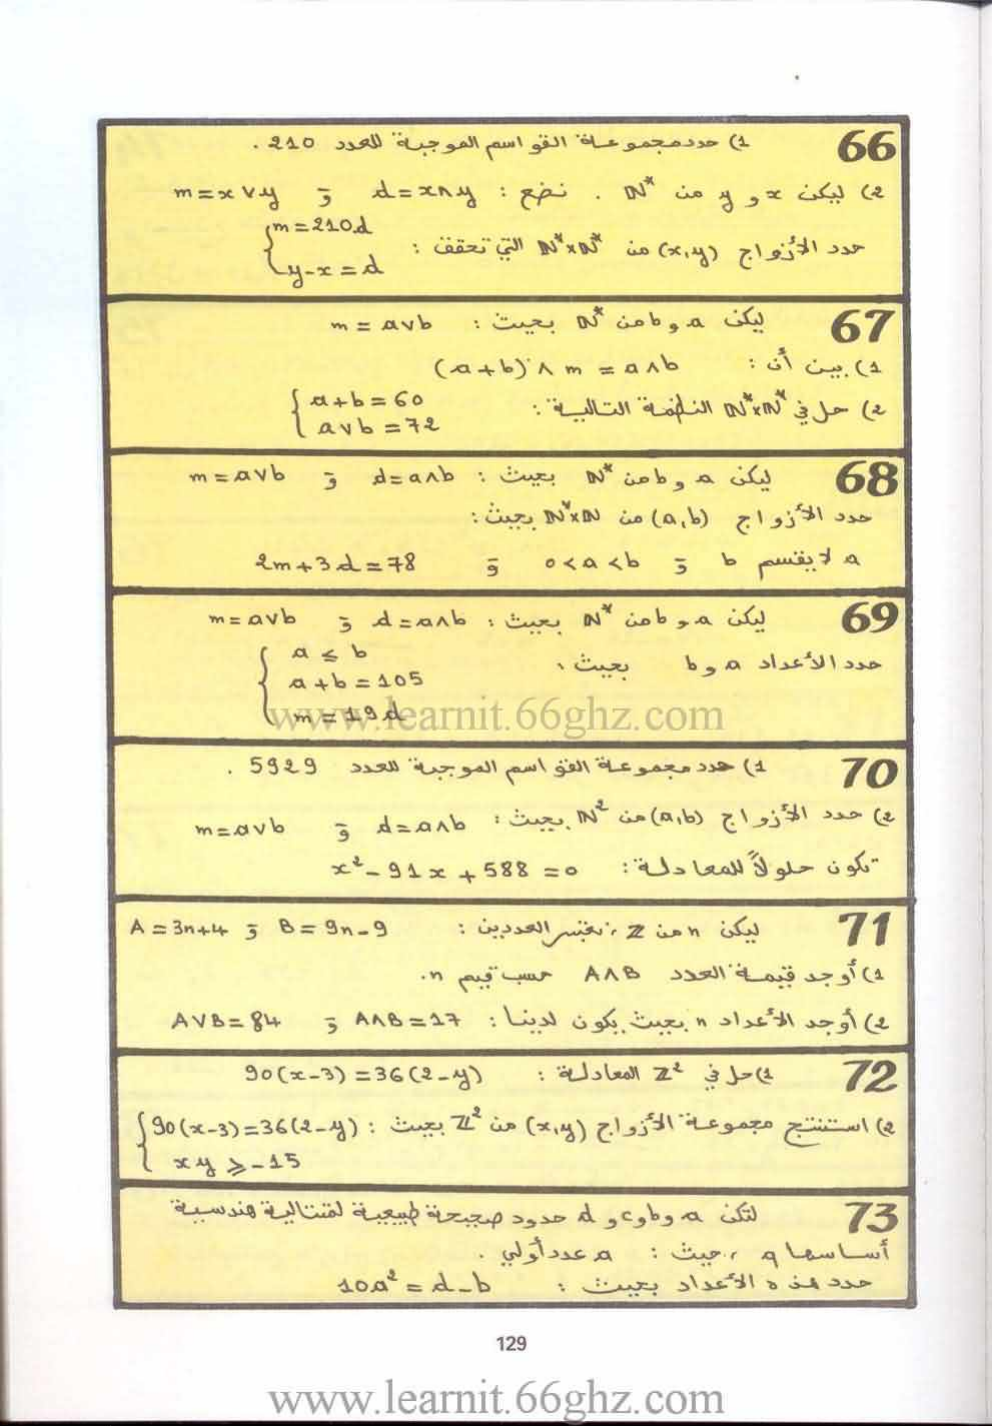 66
1) حدد مجموعة القواسم الموجبة للعدد 210 .
2) ليكن x و y من ℕ* . نضع : d = x∧y و m = x∨y
حدد الأزواج (x,y) من ℕ*×ℕ* التي تحقق : { m = 210d
y - x = d
67
ليكن a و b من ℕ* بحيث : m = a∨b
1) بين أن : (a+b)∧m = a∧b
2) حل في ℕ*×ℕ* النظمة التالية : { a+b = 60
a∨b = 72
68
ليكن a و b من ℕ* بحيث : d = a∧b و m = a∨b
حدد الأزواج (a,b) من ℕ*×ℕ بحيث :
a لا يقسم b و 0<a<b و 2m+3d = 78
69
ليكن a و b من ℕ* بحيث : d = a∧b و m = a∨b
حدد الأعداد a و b بحيث : { a ≤ b
a+b = 105
m = 19d
www.learnit.66ghz.com
70
1) حدد مجموعة القواسم الموجبة للعدد 5929 .
2) حدد الأزواج (a,b) من ℕ² بحيث : d = a∧b و m = a∨b
تكون حلولاً للمعادلة : x² - 91x + 588 = 0
71
ليكن n من ℤ ، نعتبر العددين : B = 9n-9 و A = 3n+4
1) أوجد قيمة العدد A∧B حسب قيم n.
2) أوجد الأعداد n بحيث يكون لدينا : A∧B = 17 و A∨B = 84
72
1) حل في ℤ² المعادلة : 90(x-3) = 36(2-y)
2) استنتج مجموعة الأزواج (x,y) من ℤ² بحيث : { 90(x-3) = 36(2-y)
xy ≥ -15
73
لتكن a و b و c و d حدود صحيحة طبيعية لمتتالية هندسية
أساسها q ، حيث : a عدد أولي .
حدد هذه الأعداد بحيث : 10a² = d-b
129
www.learnit.66ghz.com